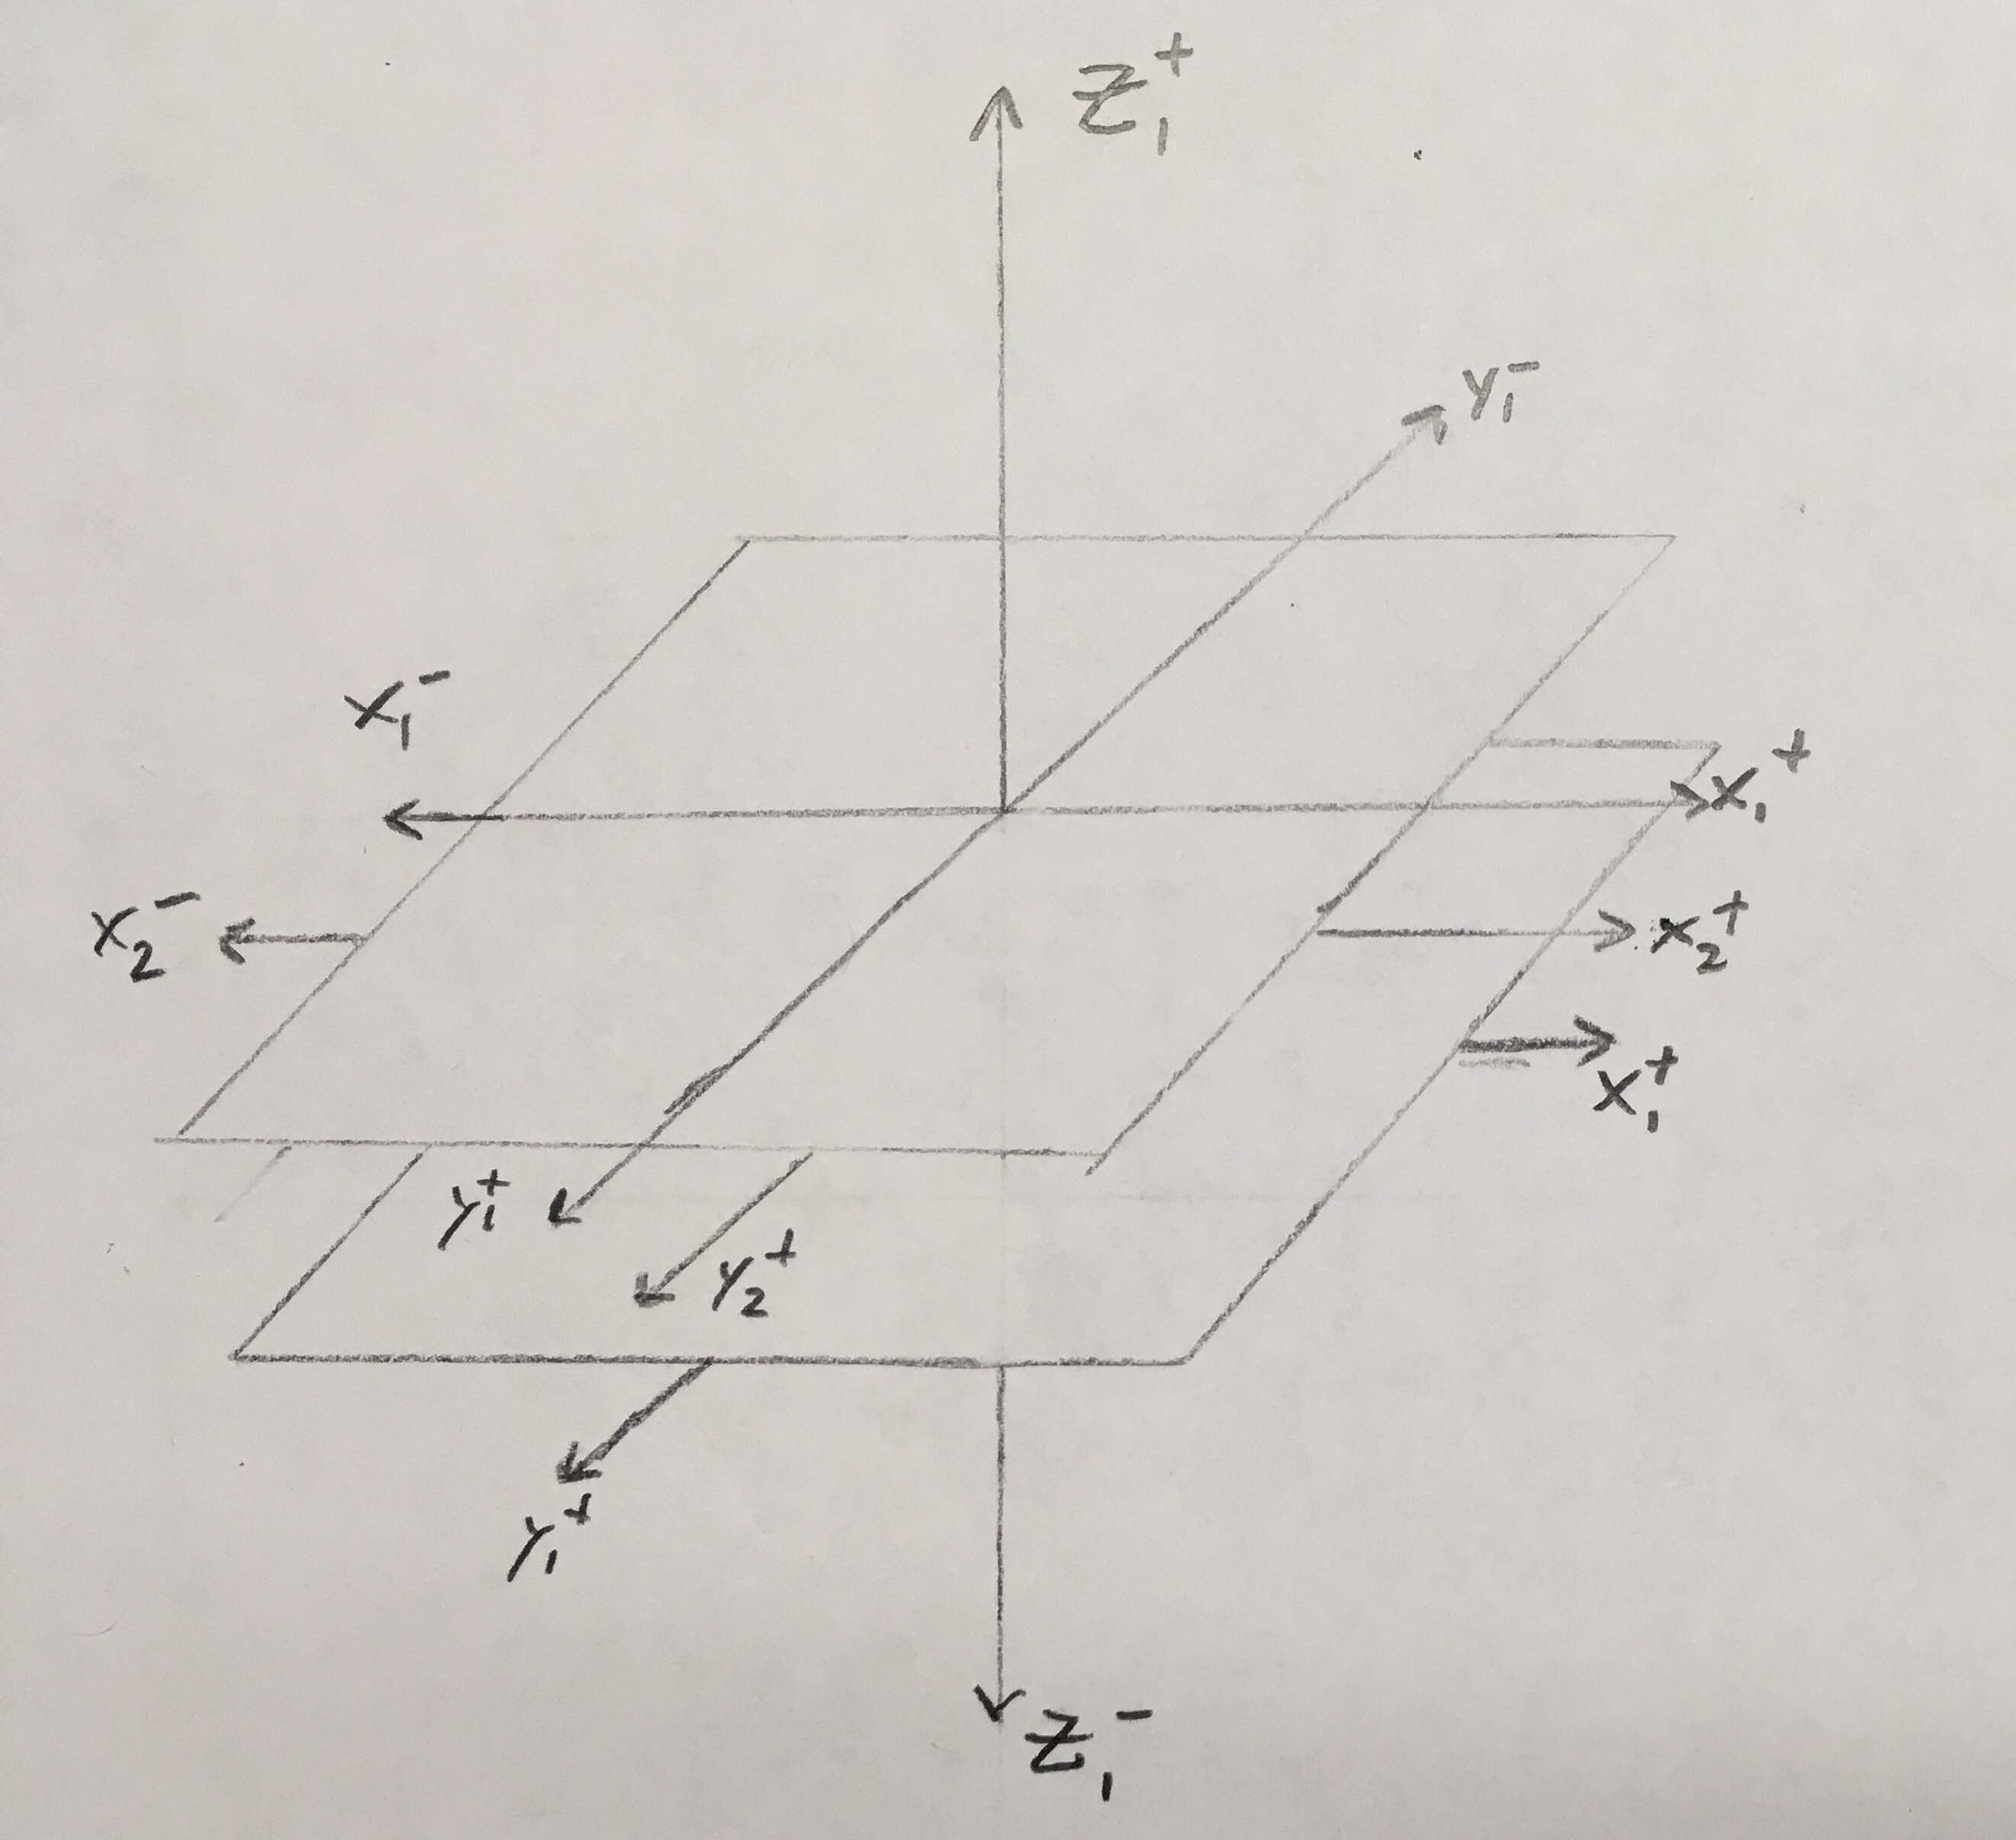 Z₁⁺
y₁⁻
x₁⁻
x₁⁺
x₂⁻
x₂⁺
x₁⁺
y₁⁺
y₂⁺
y₁⁺
Z₁⁻